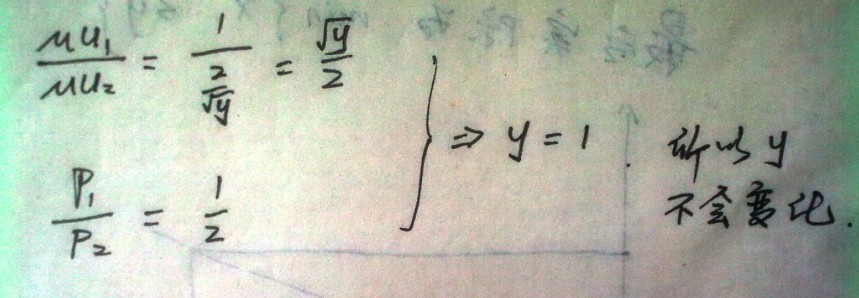 MU₁/MU₂ = 1/(2/√y) = √y/2
P₁/P₂ = 1/2
} ⇒ y = 1. 所以 y
不会变化.